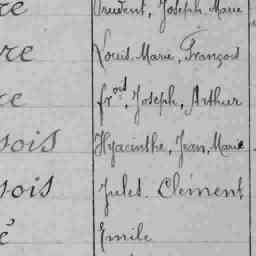 re Prudent, Joseph Marie
re Louis Marie, François
re frois, Joseph, Arthur
sois Hyacinthe, Jean, Marie
sois Jules Clément
é Emile